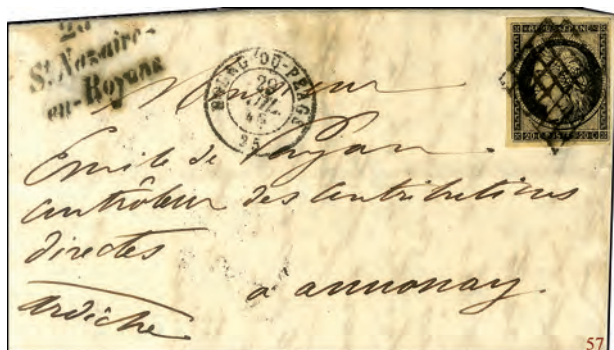 St Nazaire-
en-Royans
BOURG-DU-PEAGE
29
JUIL.
25
20 C POSTES 20 C
Monsieur
Emile de Payan.
contrôleur des contributions
directes
a annonay.
Ardèche.
57